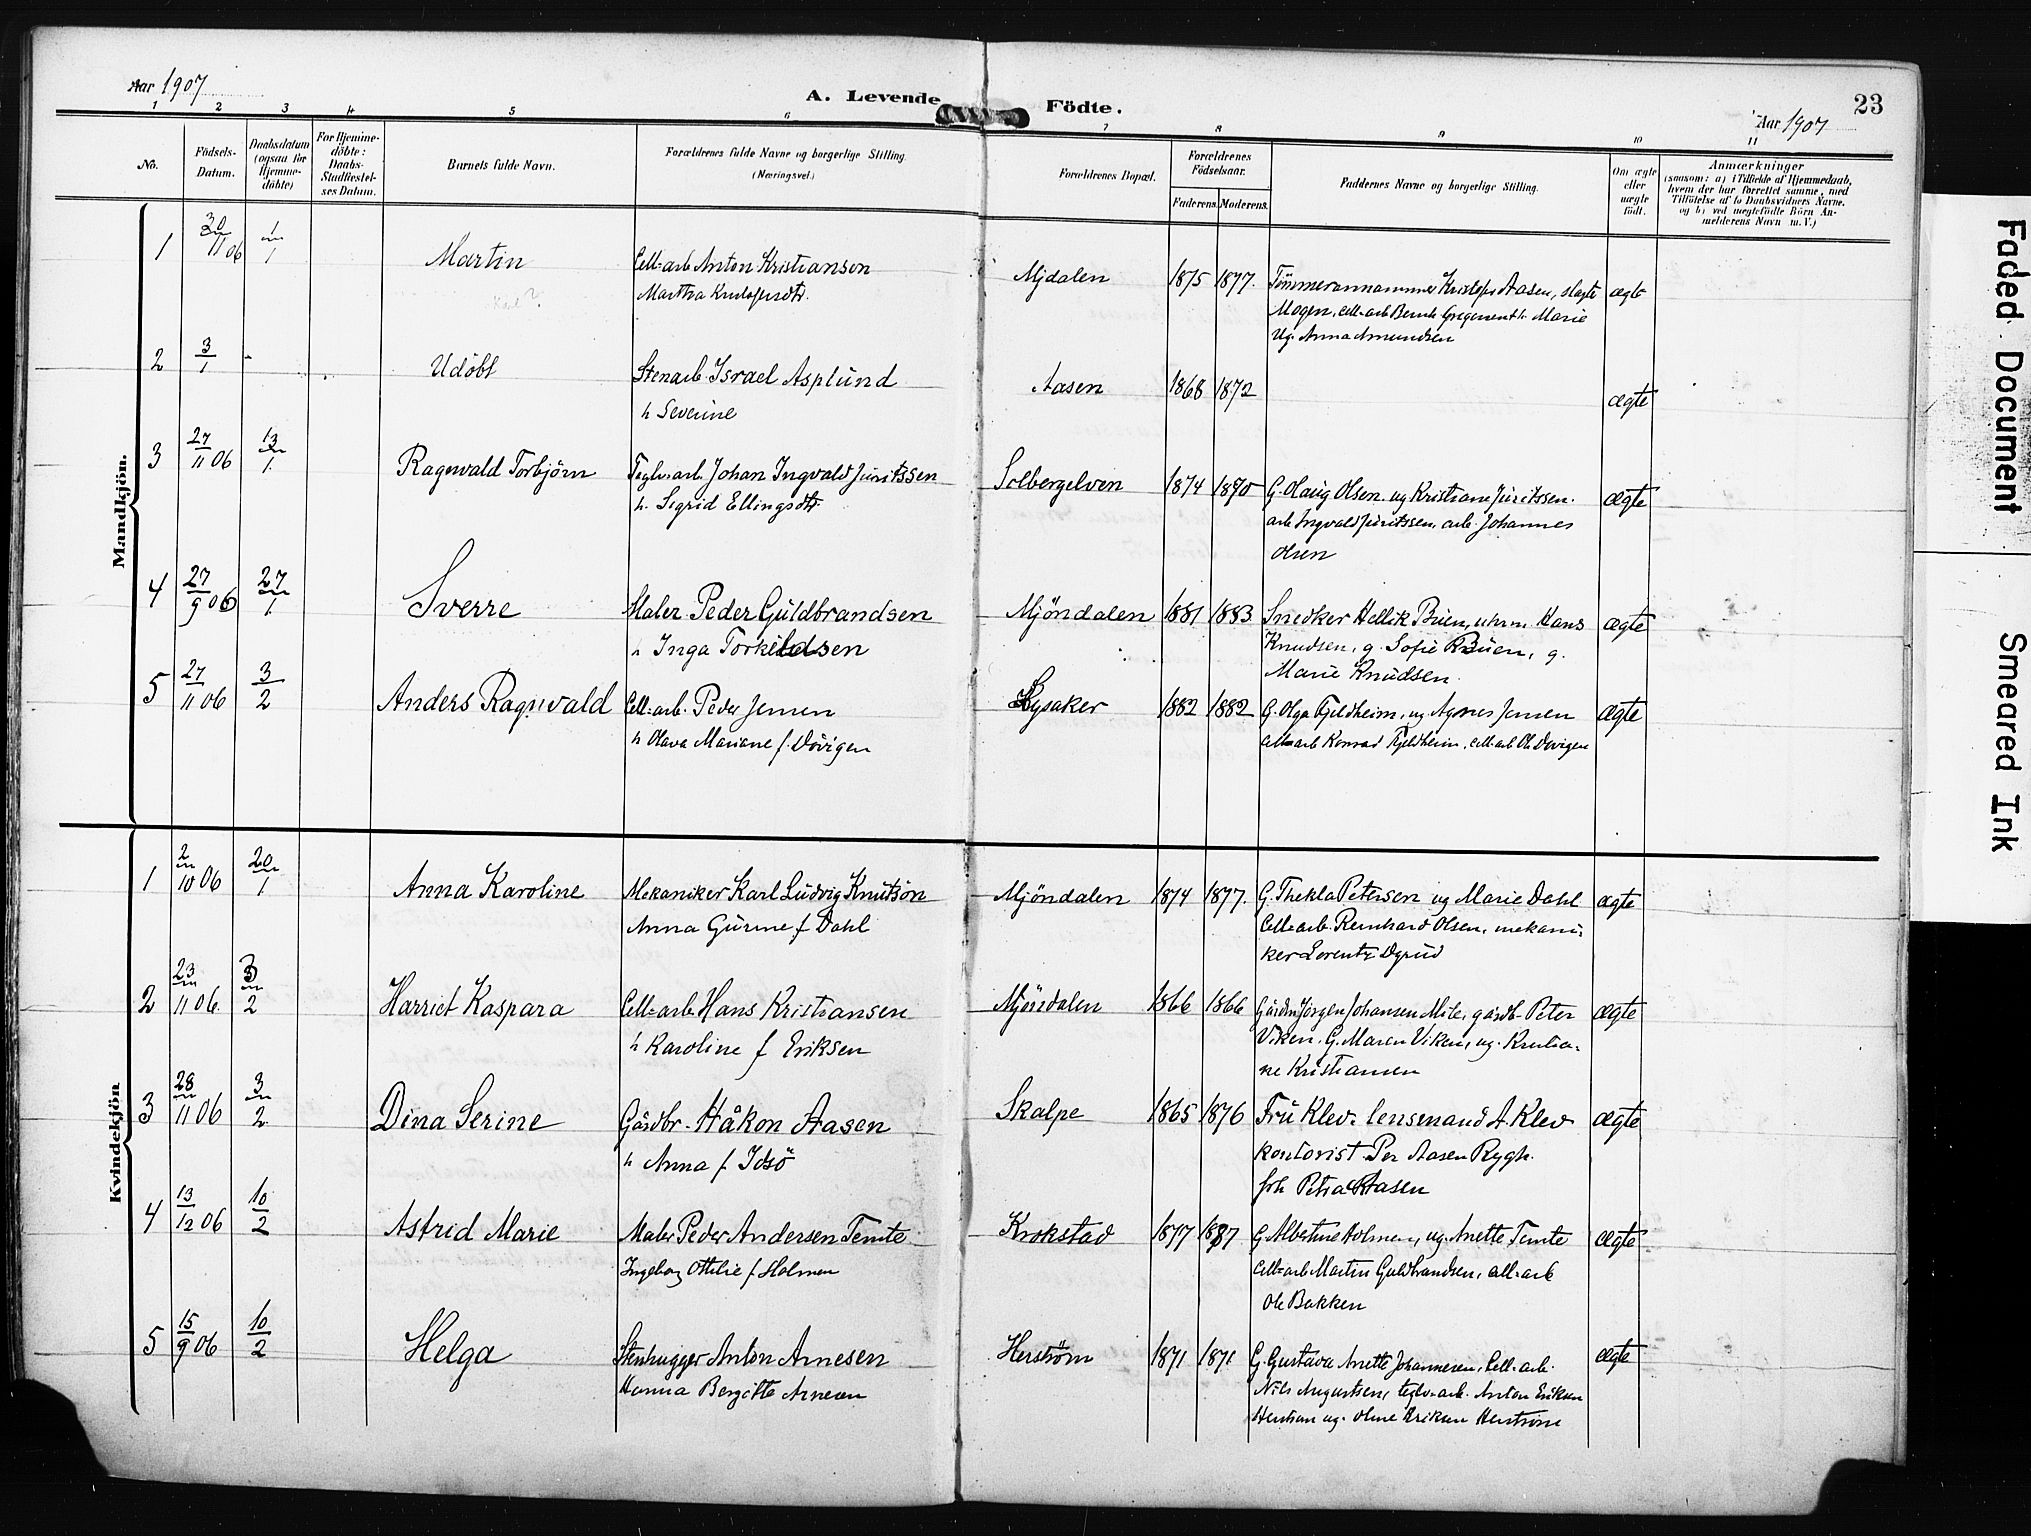 Aar 1907
A. Levende Födte.
23
Aar 1907
1 2 3 4 5 6 7 8 9 10 11
No.
Födsels-Datum.
Daabsdatum (ogsaa for Hjemme-döbte)
For Hjemme-döbte: Daabs-Stadfestel-ses Datum.
Barnets fulde Navn.
Forældrenes fulde Navne og borgerlige Stilling. (Næringsvei.)
Forældrenes Bopæl.
Forældrenes Födselsaar.
Faderens. Moderens.
Faddernes Navne og borgerlige Stilling.
Om ægte eller uægte födt.
Anmærkninger
(saasom: a) i Tilfælde af Hjemmedaab,
hvem der har forrettet samme, med
Tilföielse af to Daabsvidners Navne.
og b) ved uægtefödte Börn An-
melderens Navn m. V.)
Mandkjön.
1 30/11 06 1/1 Martin Cell-arb Anton Kristiansen Mjdalen 1875 1877. Tömmerannammer Kristofer Aasen, slagte ægte
Martha
Mogen, cell-arb Marie
Ug. Anna Amundsen
2 3/1 - Udöbt Stenarb. Israel Asplund Aasen 1868 1872 ægte
h Severine
3 27/11 06 13/1 Ragnvald Torbjörn Teglv.arb. Johan Ingvald Juritssen Solbergelven 1874 1870 G. Olaug Olsen. ug Kristiane Juritssen. ægte
h. Sigrid Ellingsdtr.
arb Ingvald Juritssen, arb. Johannes
Olsen
4 27/9 06 27/1 Sverre Maler Peder Guldbrandsen Mjöndalen 1881 1883 Snedker Hellik Buen, uhrm Hans ægte
h Inga Torkildsen
Knudsen, g. Sofie Buen, g.
Marie Knudsen.
5 27/11 06 3/2 Anders Ragnvald Cell-arb. Peder Jensen Lysaker 1882 1882 G. Olga Fjeldheim, ug Agnes Jensen ægte
h Olava Mariane f. Dövigen
cell-arb Konrad Fjeldheim, cell-arb Ole Dövigen
Kvindekjön
1 2/10 06 20/1 Anna Karoline Mekaniker Karl Ludvig Knutson Mjöndalen 1874 1877. G. Thekla Petersen ug Marie Dahl ægte
Anna Gurine f Dahl
Cell-arb. Reinhard Olsen, mekani-
ker Lorentz Dgrud
2 23/11 06. 3/2 Harriet Kaspara Cell-arb Hans Kristiansen Mjöndalen 1866 1866 Gårdm Jörgen Johansen Mile, gårdb. Peter ægte
h Karoline f Eriksen
Viken. G. Maren Viken, ug. Kristia-
ne Kristiansen
3 28/11 06 3/2 Dina Serine Gårdbr. Håkon Aasen Skalpe 1865 1876 Fru Klev. lensmand A. Klev ægte
h Anna f. Idsö
kontorist Per Aasen Rygh.
frk Petra Aasen
4 13/12 06 10/2 Astrid Marie Maler Peder Andersen Temte Krokstad 1877 1887 G Albertine Holmen, ug. Anette Temte ægte
Ingeborg Ottilie f Holmen
cell-arb Martin Guldbrandsen, cell-arb
Ole Bakken
5 15/9 06 10/2 Helga Stenhugger Anton Arnesen Herström 1871 1871 G. Gustava Anette Johannesen, Cell-arb. ægte
Hanna Bergitte Arnesen
Nils Augustsen, teglv-arb. Anton Eriksen
ug. Eriksen Herström
Faded Document
Smeared Ink